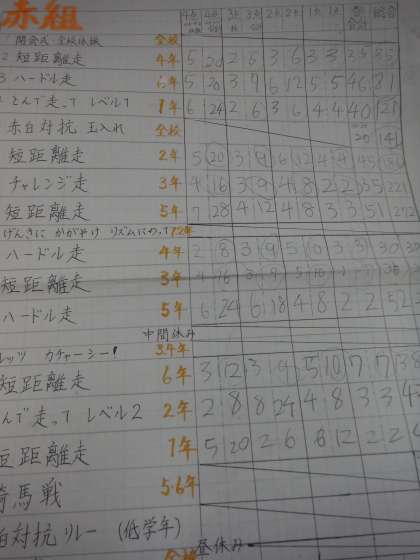 赤組
4点 4点 3点 3点 2点 2点 1点 1点 合計 総合
1 開会式・全校体操 全校
2 短距離走 4年 5 20 2 6 3 6 3 3 35 35
3 ハードル走 6年 5 20 3 9 6 12 5 5 46 81
とんで走って レベル1 1年 6 24 2 6 3 6 4 4 40 121
赤白対抗 玉入れ 全校 20 141
短距離走 2年 5 20 3 9 6 12 4 4 45
チャレンジ走 3年 4 16 3 9 4 8 2 2 35 221
短距離走 5年 7 28 4 12 4 8 3 3 51 272
げんきに かがやけ リズムにのって 1.2年
ハードル走 4年 2 8 3 9 5 10 3 3 30
短距離走 3年
ハードル走 5年 6 24 6 18 4 8 2 2 52
中間休み
レッツ カチャーシー! 3.4年
短距離走 6年 3 12 3 9 5 10 7 7 38
んで走って レベル2 2年 2 8 8 24 4 8 3 3
短距離走 1年 5 20 2 6 6 12 2 2
騎馬戦 5.6年
白対抗リレー (低学年)
昼休み
全校